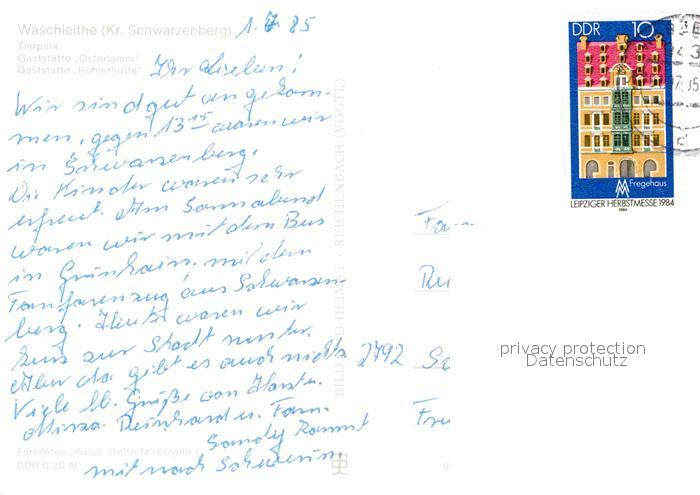 Waschleithe (Kr. Schwarzenberg)
Tierpark
Gaststätte „Osterlamm"
Gaststätte „Köhlerhütte"
1. 7. 85
Ihr Lieben!
Wir sind gut angekom-
men, gegen 13 15 waren wir
in Schwarzenberg.
Die Kinder waren sehr
erfreut. Am Sonnabend
waren wir mit dem Bus
in Grünhain mit dem
Fanfarenzug aus Schwarzen-
berg. Heute waren wir
kurz zur Stadt runter.
Aber da gibt es auch nichts
Viele lb. Grüße von Horst u.
Reinhard u. Fam.
Sandy kommt
mit nach Schwerin.
Farbfotos: Karpf, Oelsnitz (Erzgeb.)
DDR 0,20 M
BILD UND HEIMAT · REICHENBACH (VOGTL)
DDR 10
Fregehaus
LEIPZIGER HERBSTMESSE 1984
1984
Fam
2792 Sc
privacy protection
Datenschutz